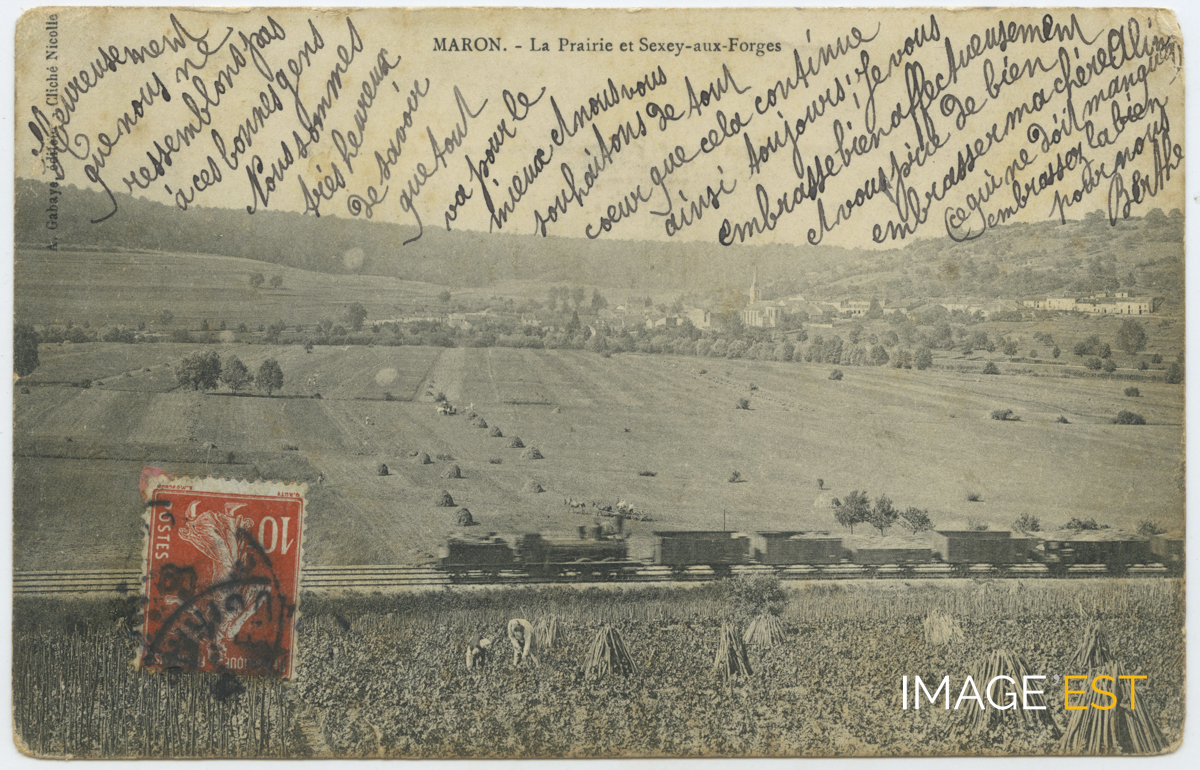 MARON. - La Prairie et Sexey-aux-Forges
A. Gabayo, éditeur, Cliché Nicolle
Heureusement
que nous ne
ressemblons pas
à ces bonnes gens
Nous sommes
très heureux
de savoir
que tout
va pour le
mieux et nous vous
souhaitons de tout
coeur que cela continue
ainsi toujours! Je vous
embrasse bien affectueusement
et vous prie de bien
embrasser ma chère Aline
ce qui ne doit manquer
embrassez la bien
pour nous
Berthe
10
POSTES
IMAGE'EST